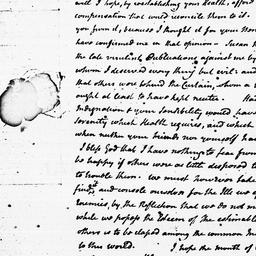 will I hope, by reestablishing your Health, afford
compensation that would reconcile them to it.
you from it, because I thought it for your Hono
have confirmed me in that opinion -
the late virulent Publications against me by
whom I deserved every thing but evil: and
that others were behind the Curtain, whom a
ought at least to have kept neuter. Ha
Indignation & your Sensibility would have
Serenity which Health requires, and which
when neither your friends nor yourself have
I bless God that I have nothing to fear from
be happy if others were as little disposed to
to trouble them. We must however take
find, and console ourselves for the Ills we
Enemies, by the Reflection that we do not m
while we possess the Esteem of the estimable
others is to be classed among the common
to this world. I hope the month of